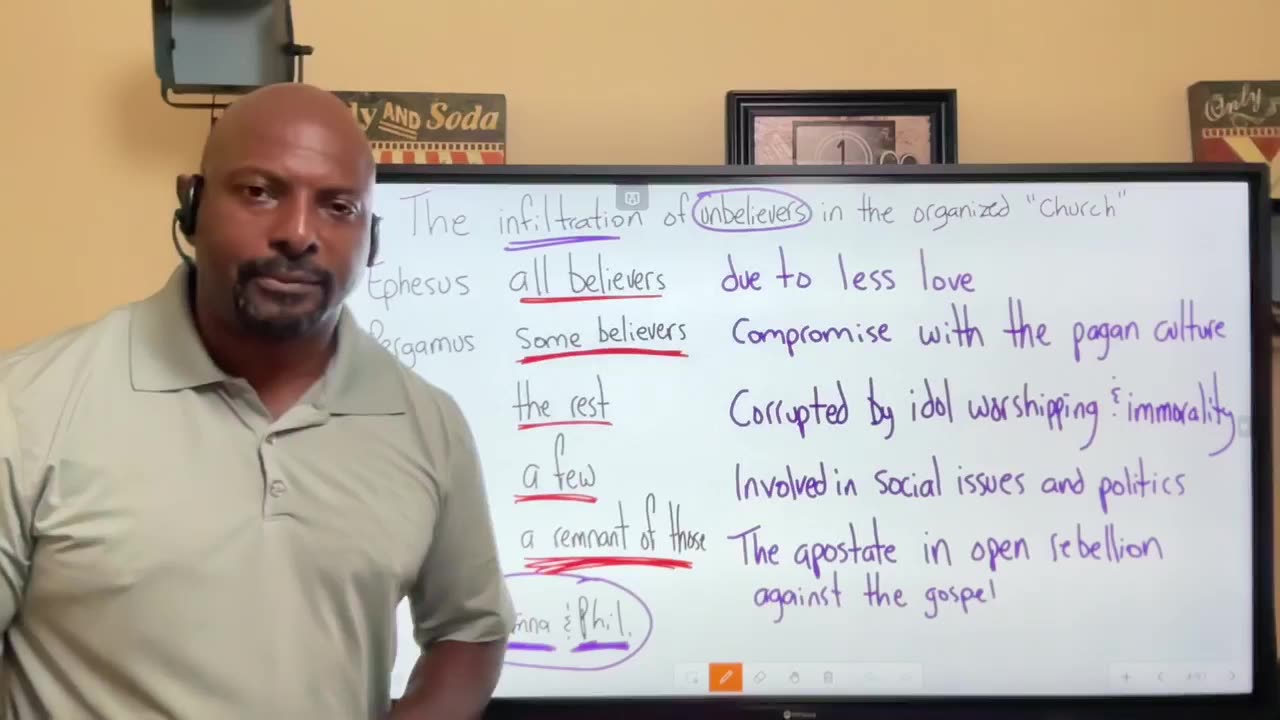 AND Soda
Only
1
The infiltration of unbelievers in the organized "Church"
Ephesus all believers due to less love
Pergamus Some believers Compromise with the pagan culture
the rest Corrupted by idol worshipping & immorality
a few Involved in social issues and politics
a remnant of those The apostate in open rebellion
against the gospel
& Phil.